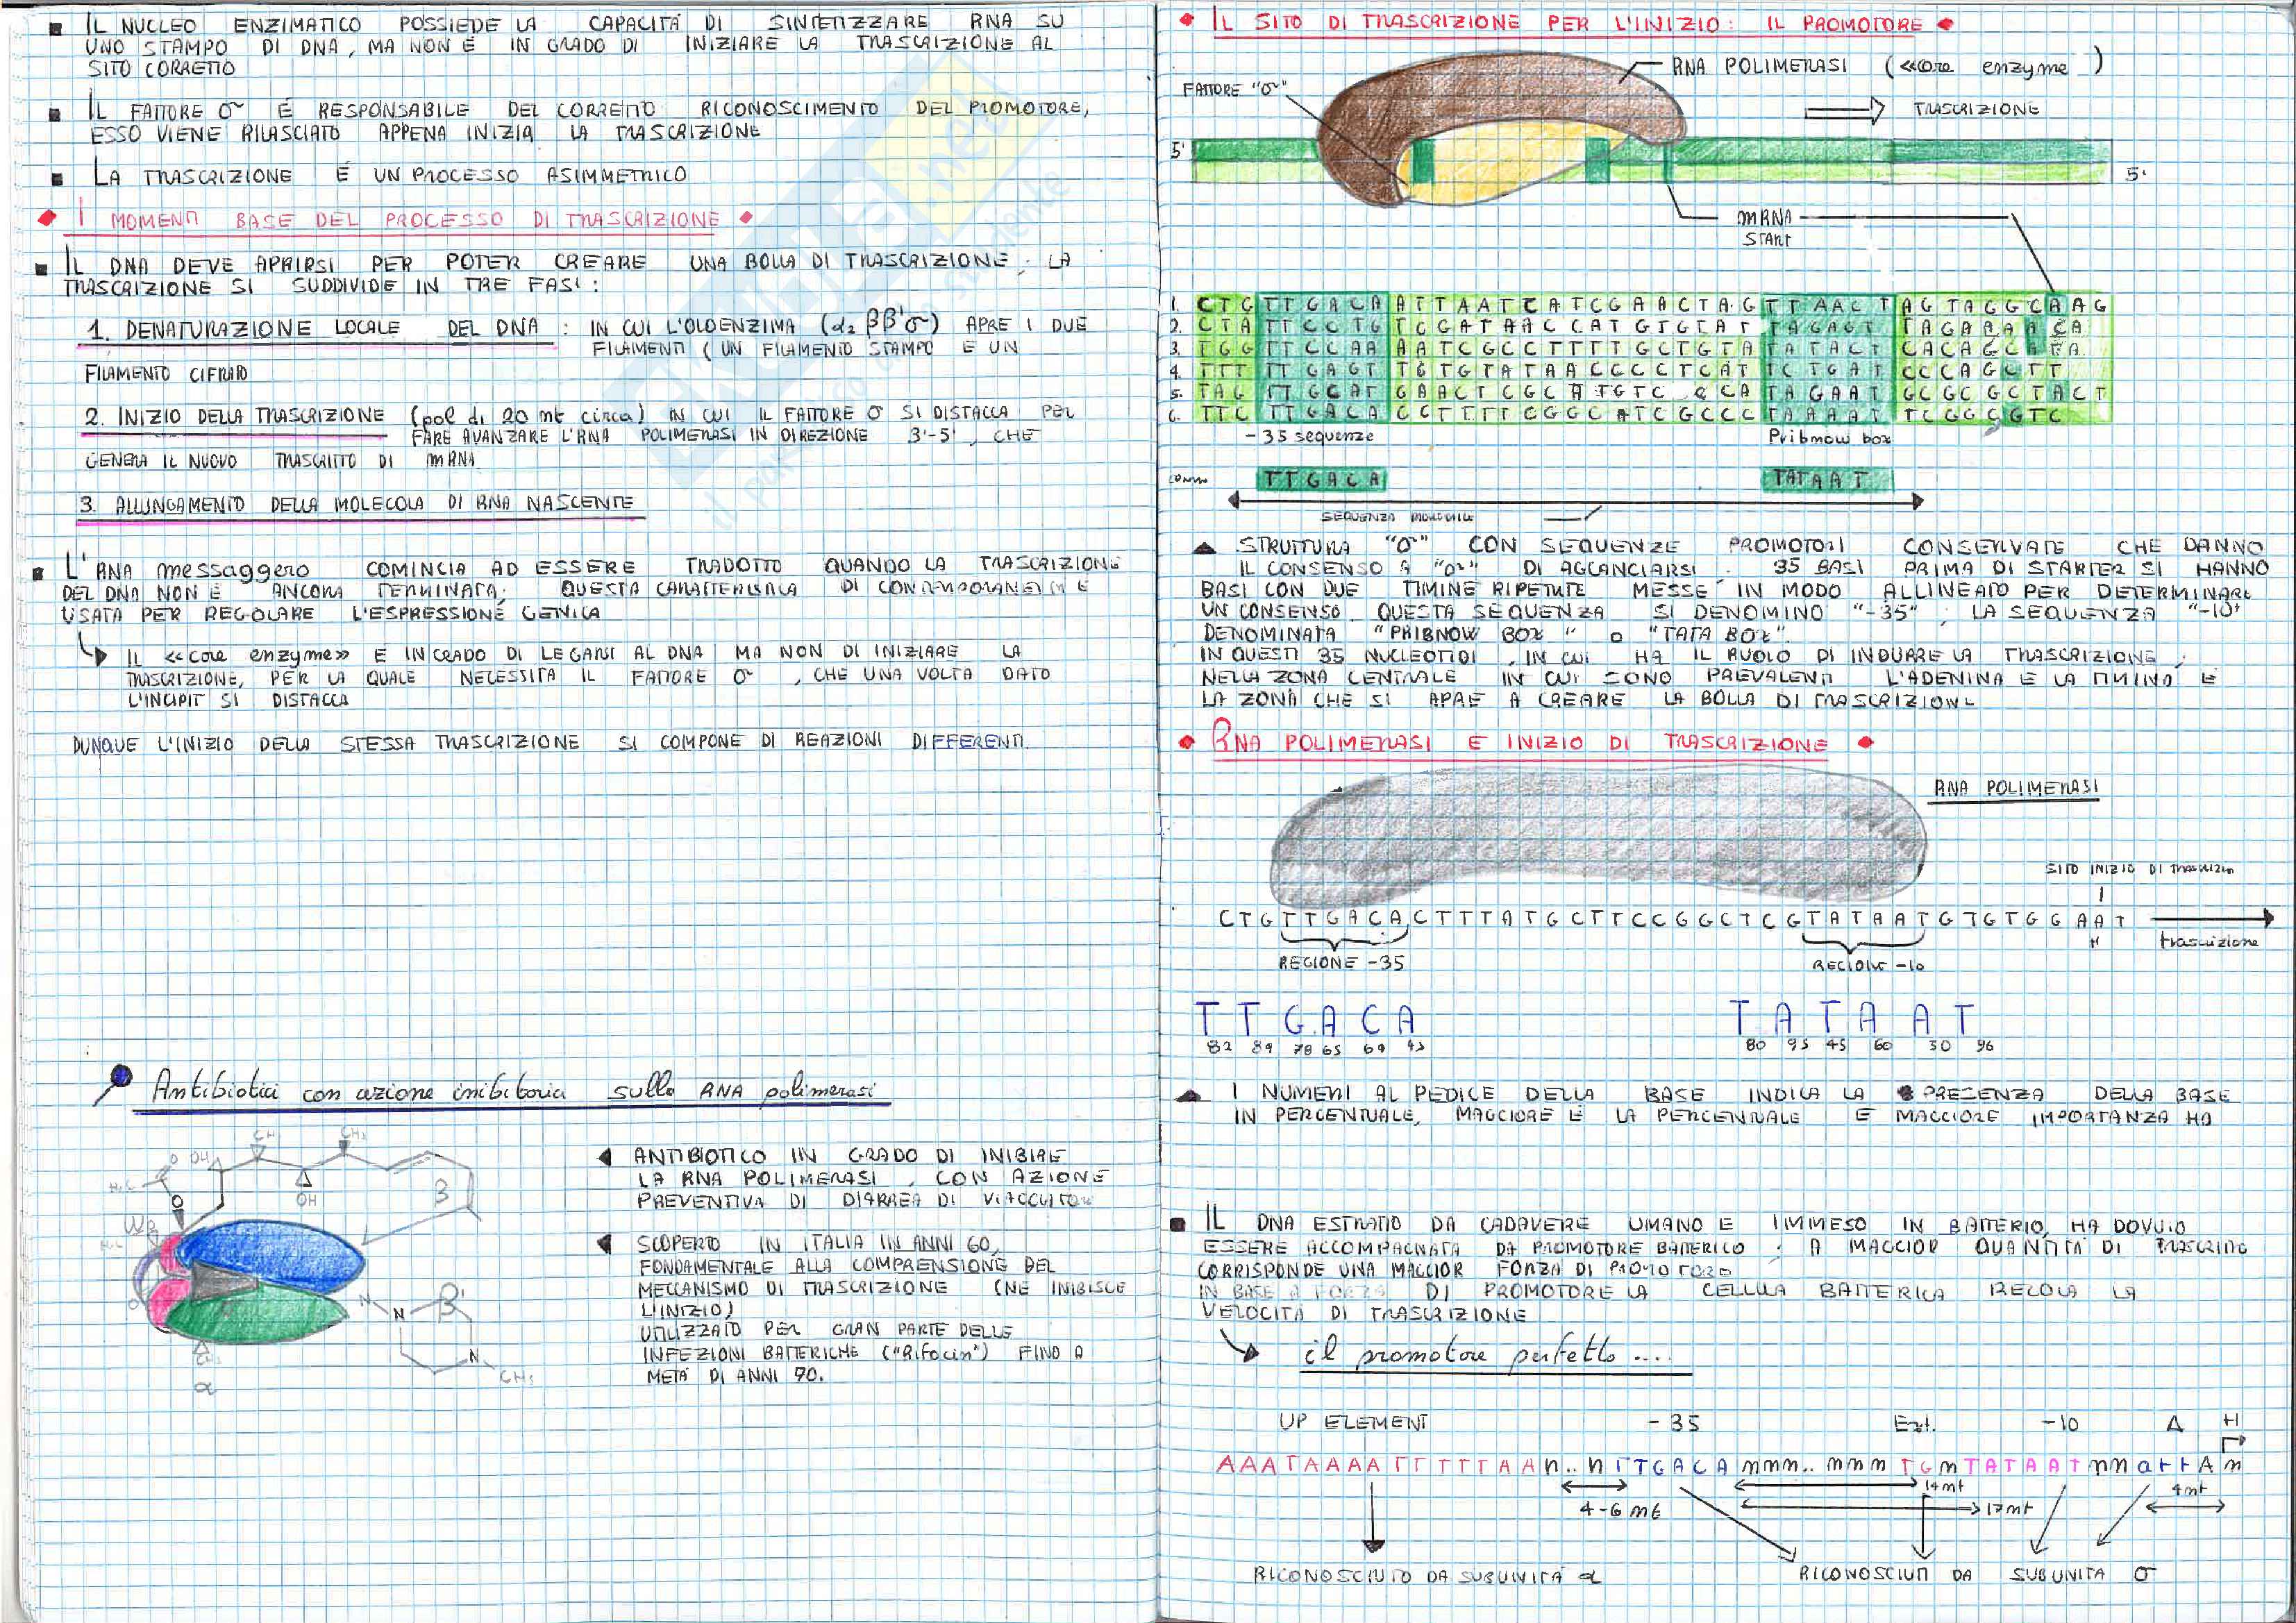 IL NUCLEO ENZIMATICO POSSIEDE LA CAPACITÀ DI SINTETIZZARE RNA SU
UNO STAMPO DI DNA, MA NON È IN GRADO DI INIZIARE LA TRASCRIZIONE AL
SITO CORRETTO
IL FATTORE σ È RESPONSABILE DEL CORRETTO RICONOSCIMENTO DEL PROMOTORE,
ESSO VIENE RILASCIATO APPENA INIZIA LA TRASCRIZIONE
LA TRASCRIZIONE È UN PROCESSO ASIMMETRICO
I MOMENTI BASE DEL PROCESSO DI TRASCRIZIONE
IL DNA DEVE APRIRSI PER POTER CREARE UNA BOLLA DI TRASCRIZIONE. LA
TRASCRIZIONE SI SUDDIVIDE IN TRE FASI:
1. DENATURAZIONE LOCALE DEL DNA: IN CUI L'OLOENZIMA (α₂ββ'σ) APRE I DUE
FILAMENTI (UN FILAMENTO STAMPO E UN
FILAMENTO CIFRATO
2. INIZIO DELLA TRASCRIZIONE (pol di 20 nt circa) IN CUI IL FATTORE σ SI DISTACCA PER
FARE AVANZARE L'RNA POLIMERASI IN DIREZIONE 3'-5', CHE
GENERA IL NUOVO TRASCRITTO DI mRNA
3. ALLUNGAMENTO DELLA MOLECOLA DI RNA NASCENTE
L'RNA messaggero COMINCIA AD ESSERE TRADOTTO QUANDO LA TRASCRIZIONE
DEL DNA NON È ANCORA TERMINATA; QUESTA CARATTERISTICA DI CONTEMPORANEITÀ È
USATA PER REGOLARE L'ESPRESSIONE GENICA
IL «core enzyme» È IN GRADO DI LEGARSI AL DNA MA NON DI INIZIARE LA
TRASCRIZIONE, PER LA QUALE NECESSITA IL FATTORE σ, CHE UNA VOLTA DATO
L'INCIPIT SI DISTACCA
DUNQUE L'INIZIO DELLA STESSA TRASCRIZIONE SI COMPONE DI REAZIONI DIFFERENTI.
Antibiotici con azione inibitoria sulla RNA polimerasi
ANTIBIOTICO IN GRADO DI INIBIRE
LA RNA POLIMERASI, CON AZIONE
PREVENTIVA DI DIARREA DI VIAGGIATORI
SCOPERTO IN ITALIA IN ANNI 60,
FONDAMENTALE ALLA COMPRENSIONE DEL
MECCANISMO DI TRASCRIZIONE (NE INIBISCE
L'INIZIO)
UTILIZZATO PER GRAN PARTE DELLE
INFEZIONI BATTERICHE ("Rifocin") FINO A
METÀ DI ANNI 90.
CH₃
OH
OH
3
β'
N
N
N
CH₃
α
IL SITO DI TRASCRIZIONE PER L'INIZIO: IL PROMOTORE
RNA POLIMERASI («core enzyme)
FATTORE "σ"
TRASCRIZIONE
5'
5'
mRNA
START
1. CTG TTGACA ATTAATCATCGAACTAG TTAACT AGTAGGCAAG
2. CTA TTCCTG TGGATAACCATGTGTAT TAGAGT TAGAAAACA
3. TGG TTCCAA AATCGCCTTTTGCTGTA TATACT CACAGCATA
4. TTT TTGAGT TGTGTATAACCCCTCAT TCTGAT CCCAGCTT
5. TAG TTGCAT GAACTCGCATGTC CCA TAGAAT GCGCGCTACT
6. TTC TTGACA CCTTTTCGGCATCGCCC TAAAAT TCGGCGTC
-35 sequenze
Pribmow box
TTGACA
TATAAT
SEQUENZA
STRUTTURA "σ" CON SEQUENZE PROMOTORI CONSERVATE CHE DANNO
IL CONSENSO A "σ" DI AGGANCIARSI. 35 BASI PRIMA DI STARTER SI HANNO
BASI CON DUE TIMINE RIPETUTE MESSE IN MODO ALLINEATO PER DETERMINARE
UN CONSENSO. QUESTA SEQUENZA SI DENOMINO "-35"; LA SEQUENZA "-10"
DENOMINATA "PRIBNOW BOX" O "TATA BOX".
IN QUESTI 35 NUCLEOTIDI, IN CUI HA IL RUOLO DI INDURRE LA TRASCRIZIONE;
NELLA ZONA CENTRALE IN CUI SONO PREVALENTI L'ADENINA E LA TIMINA È
LA ZONA CHE SI APRE A CREARE LA BOLLA DI TRASCRIZIONE
RNA POLIMERASI E INIZIO DI TRASCRIZIONE
RNA POLIMERASI
SITO INIZIO DI TRASCRIZION
CTGTTGACACTTTATGCTTCCGGCTCGTATAATGTGTGGAAT
+1
trascrizione
REGIONE -35
REGIONE -10
T T G A C A
82 84 78 65 64 45
T A T A A T
80 95 45 60 50 96
I NUMERI AL PEDICE DELLA BASE INDICA LA PRESENZA DELLA BASE
IN PERCENTUALE, MAGGIORE È LA PERCENTUALE E MAGGIORE IMPORTANZA HA
IL DNA ESTRATTO DA CADAVERE UMANO E IMMESO IN BATTERIO, HA DOVUTO
ESSERE ACCOMPAGNATA DA PROMOTORE BATTERICO; A MAGGIOR QUANTITÀ DI TRASCRITTO
CORRISPONDE UNA MAGGIOR FORZA DI PROMOTORE
IN BASE A FORZA DI PROMOTORE LA CELLULA BATTERICA REGOLA LA
VELOCITÀ DI TRASCRIZIONE
il promotore perfetto ....
UP ELEMENT -35 Ext. -10 A +1
AAATAAAATTTTTAAn..nTTGACAnnn..nnnTGnTATAATnnattAn
14nt
4nt
4-6 nt
17nt
RICONOSCIUTO DA SUBUNITÀ α
RICONOSCIUTI DA SUBUNITÀ σ